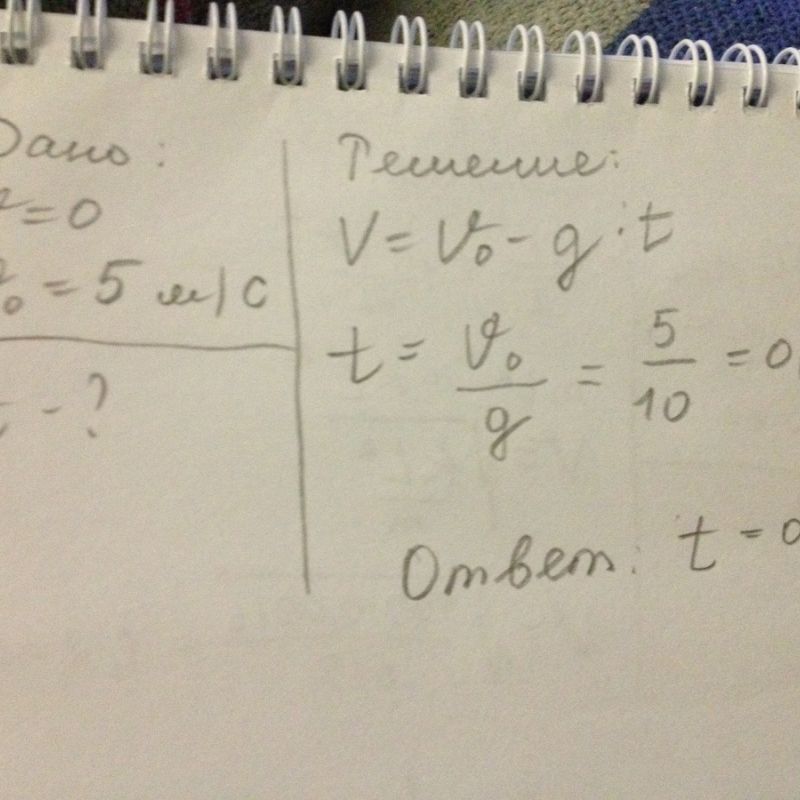 Дано:
v=0
v₀ = 5 м/с
t - ?
Решение:
V = v₀ - g · t
t = v₀/g = 5/10 = 0,
Ответ: t = 0